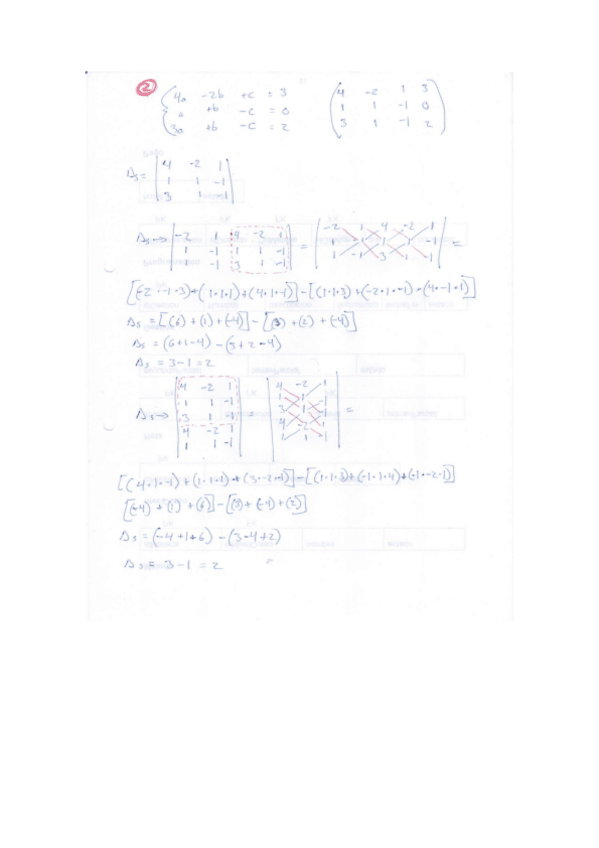 2
4a -2b +c = 3
a +b -c = 0
3a +b -c = 2
4 -2 1 3
1 1 -1 0
3 1 -1 2
Δs = 4 -2 1
1 1 -1
3 1 -1
Δs → -2 1 4 -2 1 = -2 1 4 -2 1 =
1 -1 1 1 -1 1 -1 1 1 -1
1 -1 3 1 -1 1 -1 3 1 -1
[(-2·-1·3)+(1·1·1)+(4·1·-1)]-[(1·1·3)+(-2·1·-1)+(4·-1·1)]
Δs = [(6)+(1)+(-4)]-[(3)+(2)+(-4)]
Δs = (6+1-4)-(3+2-4)
Δs = 3-1=2
Δs → 4 -2 1 = 4 -2 1 =
1 1 -1 1 1 -1
3 1 -1 3 1 -1
4 -2 1 4 -2 1
1 1 -1 1 1 -1
[(4·1·-1)+(1·1·1)+(3·-2·-1)]-[(1·1·3)+(-1·1·4)+(-1·-2·1)]
[(-4)+(1)+(6)]-[(3)+(-4)+(2)]
Δs = (-4+1+6)-(3-4+2)
Δs = 3-1=2